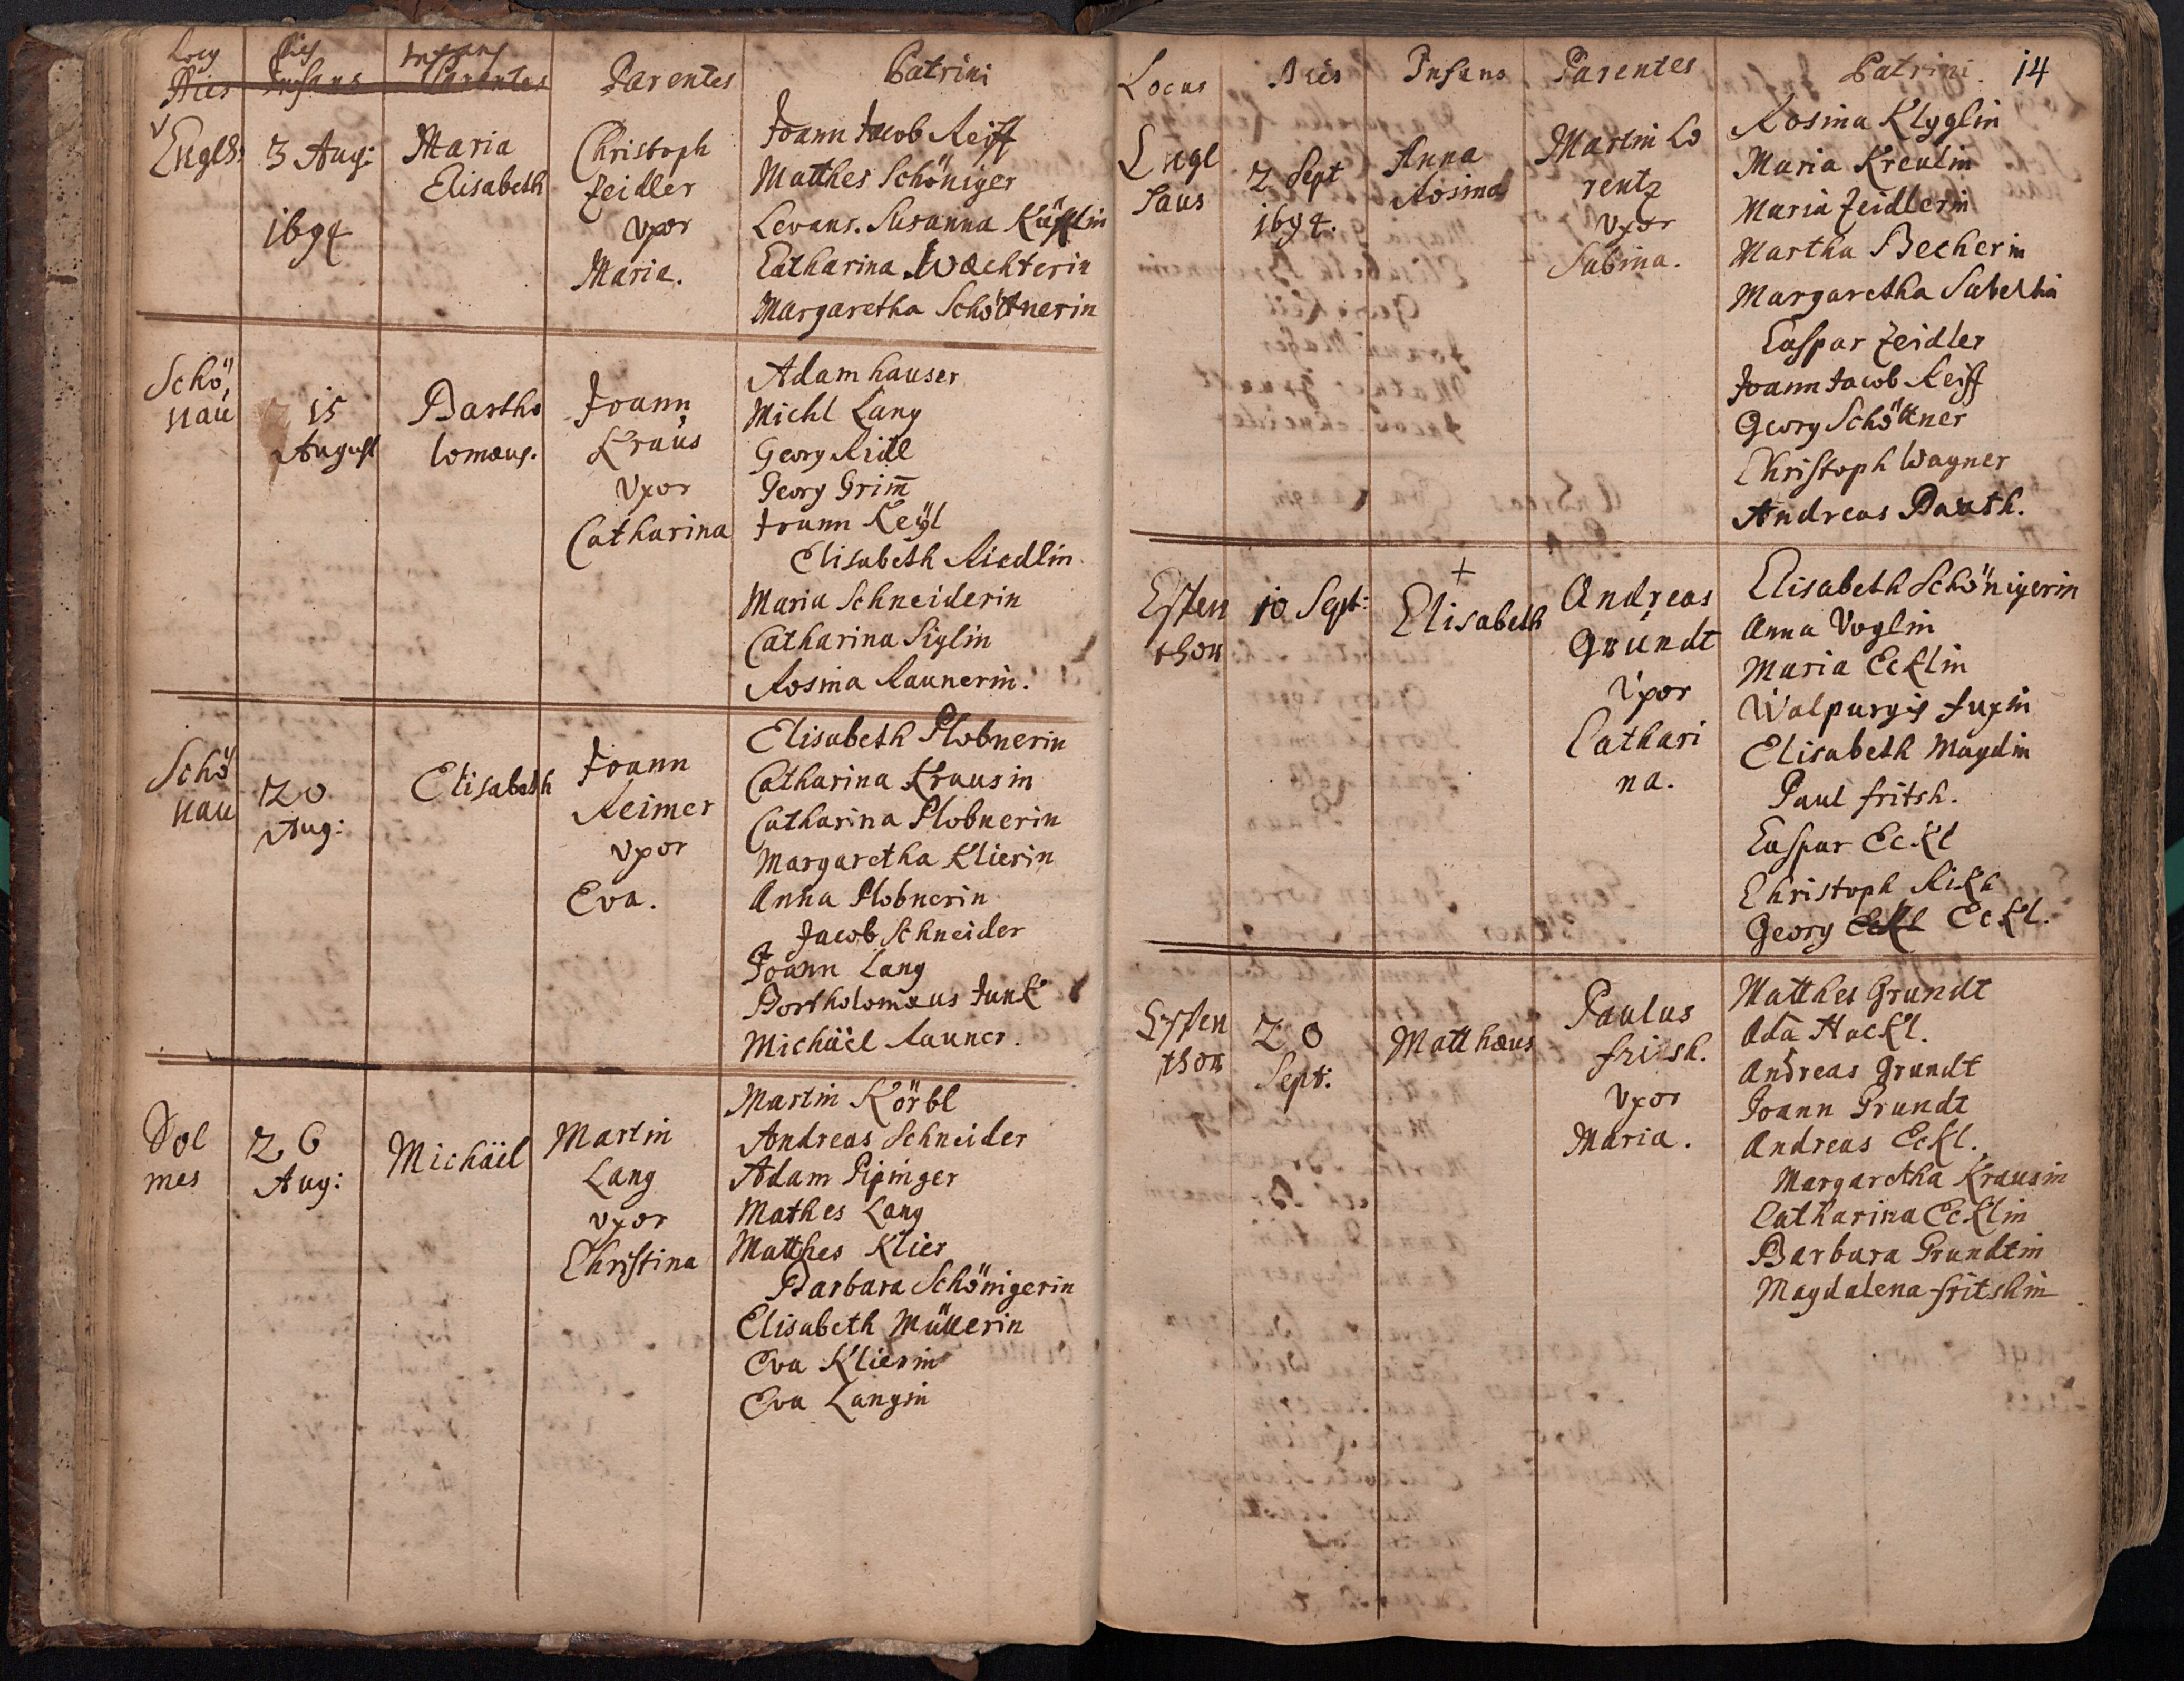 Locus Dies Infans Parentes Patrini
Dies Infans Parentes
Englh: 3 Aug: 1694
Maria
Elisabeth
Christoph
Zeidler
Vxor
Maria.
Joann Jacob Reiff
Matthes Schöniger
Levans. Susanna
Catharina Wæchterin
Margaretha Schöttnerin
Schö
nau
15
August
Bartho
lomæus.
Joann
Kraus
Vxor
Catharina
Adam hauser
Michl Lang
Georg Ridl
Georg Grim̄
Joann Keÿl
Elisabeth Riedlin
Maria Schneiderin
Catharina Siglin
Rosina Raunerin.
Schö
nau
20
Aug:
Elisabeth
Joann
Reimer
Vxor
Eva.
Elisabeth Plobnerin
Catharina Krausin
Catharina Plobnerin
Margaretha Klierin
Anna Plobnerin
Jacob Schneider
Joann Lang
Bartholomæus Junk
Michäel Rauner.
Dol
mes
26
Aug:
Michäel
Martin
Lang
Vxor
Christina
Martin Körbl
Andreas Schneider
Adam Pipinger
Mathes Lang
Matthes Klier
Barbara Schönigerin
Elisabeth Müllerin
Eva Klierin
Eva Langin
Locus Dies Infans Parentes Patrini. 14
Engl
haus
2 Sept
1694.
Anna
Rosina
Martin Lo
rentz
Vxor
Sabina.
Rosina Klyglin
Maria Kreulin
Maria Zeidlerin
Martha Becherin
Margaretha
Caspar Zeidler
Joann Jacob Reiff
Georg Schöttner
Christoph Wagner
Andreas Pauth.
Espen
thor
10 Sept:
+
Elisabeth
Andreas
Grundt
Vxor
Cathari
na.
Elisabeth Schönigerin
Anna Voglin
Maria Ecklin
Walpurgis fuxin
Elisabeth Maydin
Paul fritsh.
Caspar Eckl
Christoph
Georg Eckl Eckl.
Espen
thor
20
Sept:
Matthæus
Paulus
fritsh.
Vxor
Maria.
Matthes Grundt
Adā Hackl.
Andreas Grundt
Joann Grundt
Andreas Eckl.
Margaretha Krausin
Catharina Ecklin
Barbara Grundtin
Magdalena fritshin